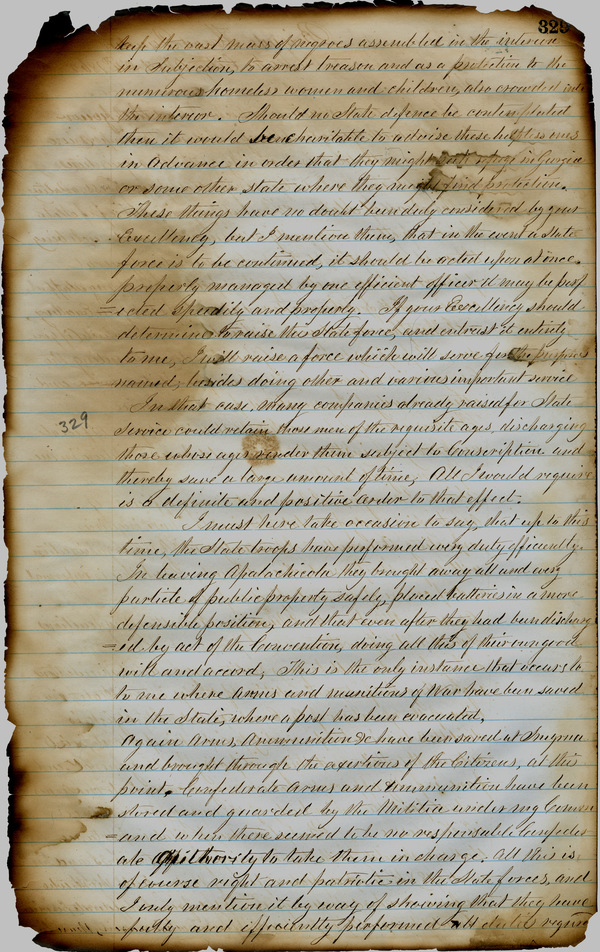 329
keep the vast mass of negroes assembled in the interior
in Subjection, to arrest treason and as a protection to the
numerous homeless women and children, also crowded into
the interior. Should no State defence be contemplated
then it would be charitable to advise these helpless ones
in Advance in order that they might seek refuge in Georgia
or some other state where they might find protection.
These things have no doubt been duly considered by your
Excellency, but I mention them, that in the event a State
force is to be continued, it should be acted upon at once.
properly managed by one efficient officer it may be perf
=ected Speedily and properly. If your Excellency should
determine to raise this State force, and entrust it entirely
to me, I will raise a force which will serve for the purposes
named, besides doing other and various important service
In that case, many companies already raised for State
329
Service could retain those men of the requisite ages, discharging
those whose ages render them subject to Conscription and
thereby save a large amount of time, All I would require
is a definite and positive order to that effect.
I must here take occasion to say, that up to this
time, the State troops have performed every duty efficiently.
In leaving Apalachicola they brought away all and every
particle of public property safely, placed batteries in a more
defensible position, and that even after they had been discharg
=ed by act of the Convention, doing all this of their own good
will and accord, This is the only instance that occurs to
to me where Arms and munitions of War have been saved
in the State, where a post has been evacuated,
Again Arms, Ammunition &c have been saved at Smyrna
and brought through the exertions of the Citizens, at this
point. Confederate Arms and Ammunition have been
stored and guarded by the Militia under my Comm
=and when there seemed to be no responsable Confeder
ate Authority to take them in charge. All this is
of course right and patriotic in the State forces, and
I only mention it by way of showing that they have
and efficiently performed all duties